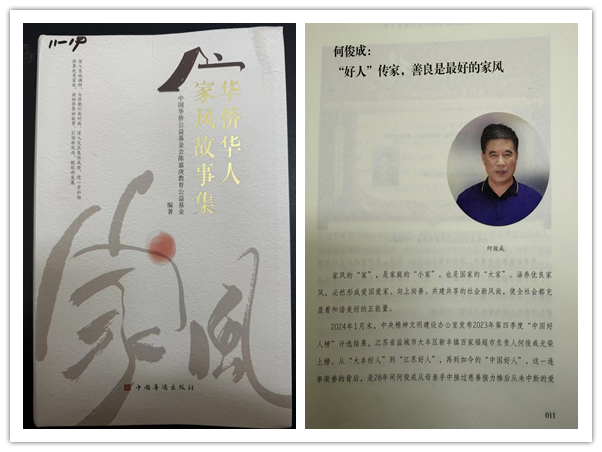 11-19
华侨华人
家风故事集
中国华侨公益基金会陈嘉庚教育公益基金
编著
家风
中国华侨出版社
何俊成：
“好人”传家，善良是最好的家风
何俊成
家风的“家”，是家庭的“小家”，也是国家的“大家”。涵养优良家
风，必然形成爱国爱家、向上向善、共建共享的社会新风尚，使全社会都充
盈着和谐美好的正能量。
2024年1月末，中央精神文明建设办公室发布2023年第四季度“中国好
人榜”评选结果，江苏省盐城市大丰区新丰镇百家福超市负责人何俊成光荣
上榜。从“大丰好人”到“江苏好人”，再到如今的“中国好人”，这一连
串荣誉的背后，是28年间何俊成从母亲手中接过慈善接力棒后从未中断的爱
011